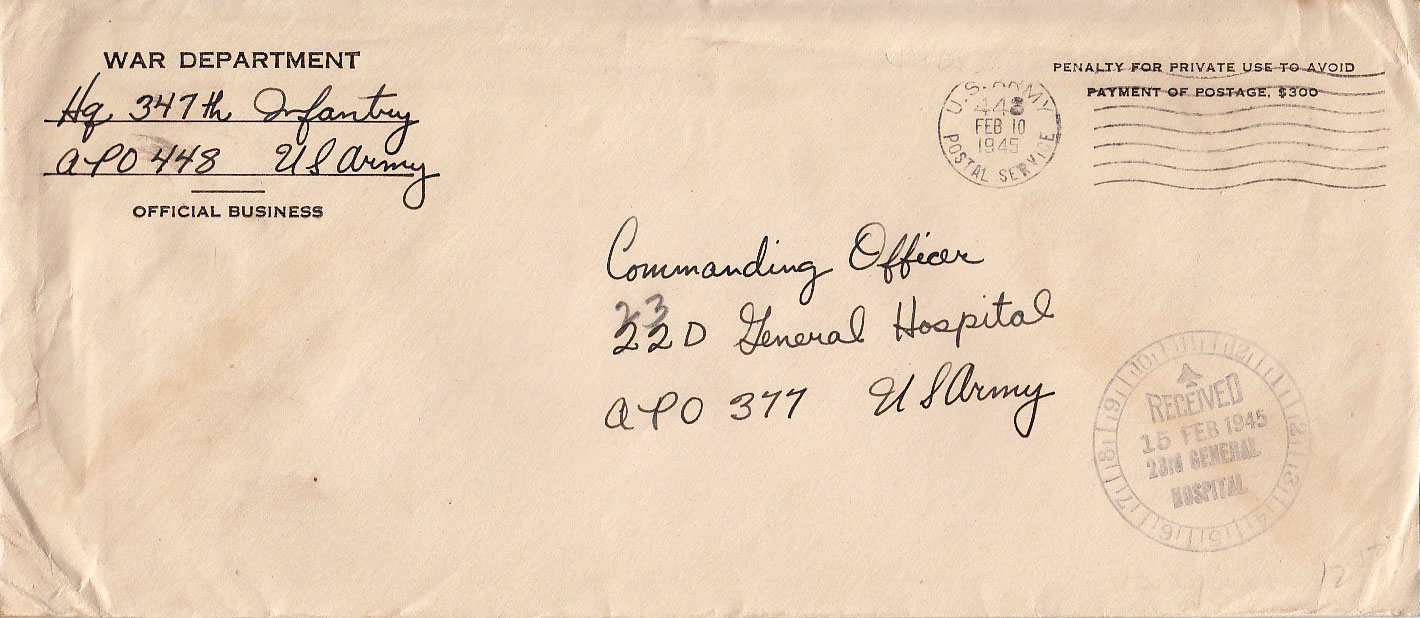 WAR DEPARTMENT
Hq 347th Infantry
APO 448 US Army
OFFICIAL BUSINESS
PENALTY FOR PRIVATE USE TO AVOID
PAYMENT OF POSTAGE, $300
U.S. ARMY
448
FEB 10
1945
POSTAL SERVICE
Commanding Officer
23
22D General Hospital
APO 377 US Army
RECEIVED
15 FEB 1945
23rd GENERAL
HOSPITAL
10 11 12 1 2 3 4 5 6 7 8 9